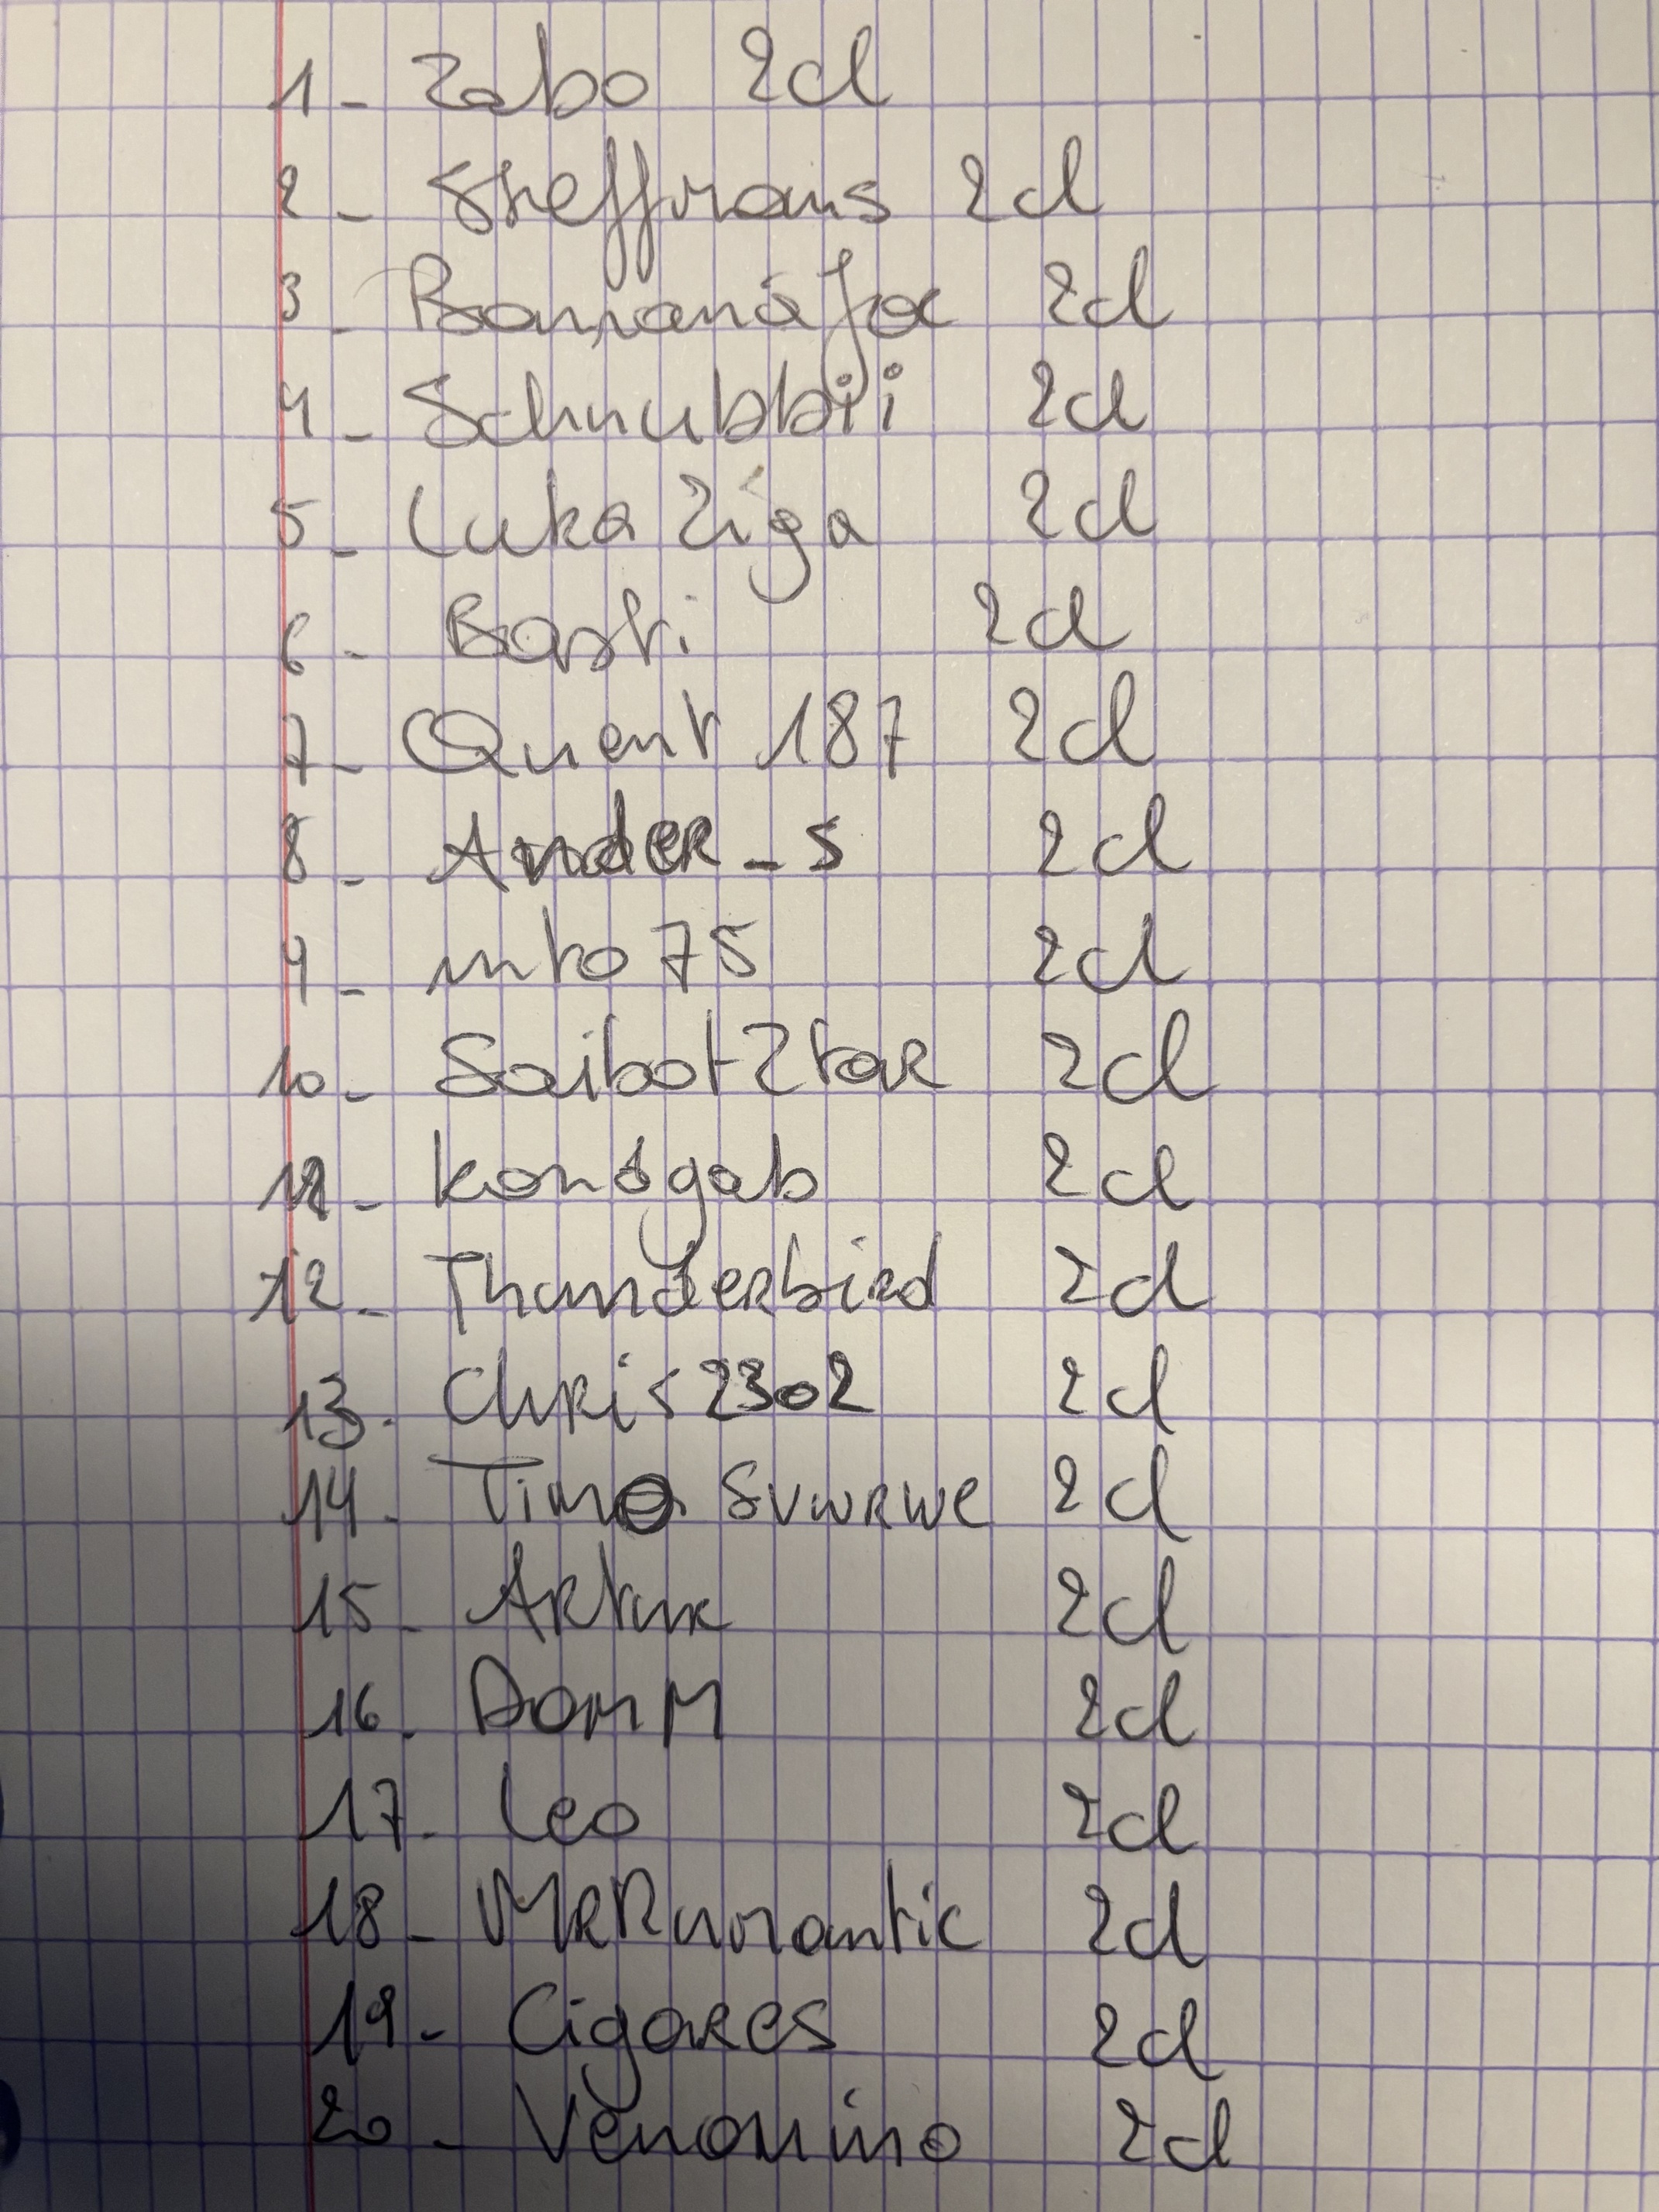 1- Zabo 2cl
2- Steffmans 2cl
3- BananaJoe 2cl
4- Schnubbii 2cl
5- Luka Ziga 2cl
6- Basti 2cl
7- Quent 187 2cl
8- Ander_s 2cl
9- mko75 2cl
10- SaibotZtar 2cl
11- kondgab 2cl
12- Thunderbird 2cl
13- Chris2302 2cl
14- Timo Svwrwe 2cl
15- Artur 2cl
16- DomM 2cl
17- Leo 2cl
18- 2cl
19- Cigares 2cl
20- Venomino 2cl